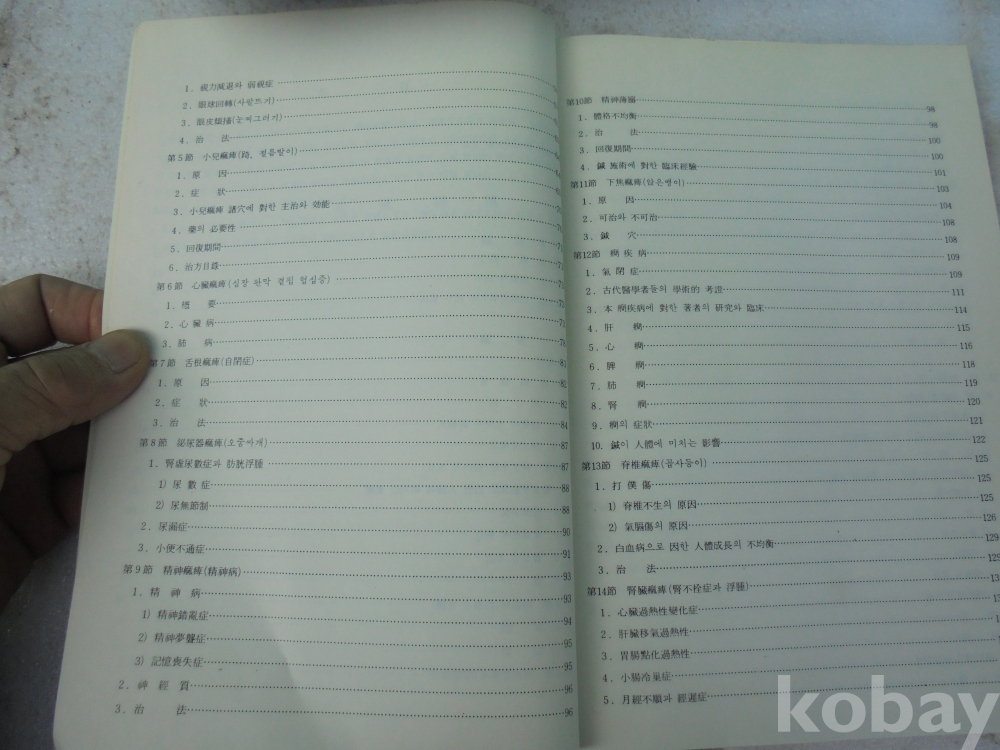 1. 視力減退와 弱視症
2. 眼球回轉(사팔뜨기)
3. 眼皮 (눈찌그러기)
4. 治 法
第5節 小兒瘋痺(跨, 절름발이)
1. 原 因
2. 症 狀
3. 小兒瘋痺 諸穴에 對한 主治와 効能
4. 藥의 必要性
5. 回復期間
6. 治方目錄
第6節 心臟瘋痺(심장 판막 결핍 협심증)
1. 槪 要
2. 心 臟 病
3. 肺 病 78
第7節 舌根瘋痺(自閉症) 81
1. 原 因 82
2. 症 狀 82
3. 治 法 84
第8節 泌尿器瘋痺(오줌싸개) 87
1. 腎虛尿數症과 肪胱浮腫 87
1) 尿 數 症 88
2) 尿無節制 88
2. 尿漏症 90
3. 小便不通症 91
第9節 精神瘋痺(精神病) 93
1. 精 神 病 93
1) 精神錯亂症 94
2) 精神夢聾症 95
3) 記憶喪失症 95
2. 神 經 質 96
3. 治 法 96
第10節 精神薄弱 98
1. 體格不均衡 98
2. 治 法 100
3. 回復期間 100
4. 鍼 施術에 對한 臨床經驗 101
第11節 下焦瘋痺(앉은뱅이) 103
1. 原 因 104
2. 可治와 不可治 108
3. 鍼 穴 108
第12節 癎 疾 病 109
1. 氣 閉 症 109
2. 古代醫學者들의 學術的 考證 111
3. 本 癎疾病에 對한 著者의 硏究와 臨床 114
4. 肝 癎 115
5. 心 癎 116
6. 脾 癎 118
7. 肺 癎 119
8. 腎 癎 120
9. 癎의 症狀 121
10. 鍼이 人體에 미치는 影響 122
第13節 脊椎瘋痺(곱사등이) 125
1. 打 僕 傷 125
1) 脊椎不生의 原因 125
2) 氣腦傷의 原因 126
2. 白血病으로 因한 人體成長의 不均衡 129
3. 治 法 129
第14節 腎臟瘋痺(腎不栓症과 浮腫)
1. 心臟過熱性變化症
2. 肝臟移氣過熱性
3. 胃腸點化過熱性
4. 小腸冷巢症
5. 月經不順과 經遲症
kobay